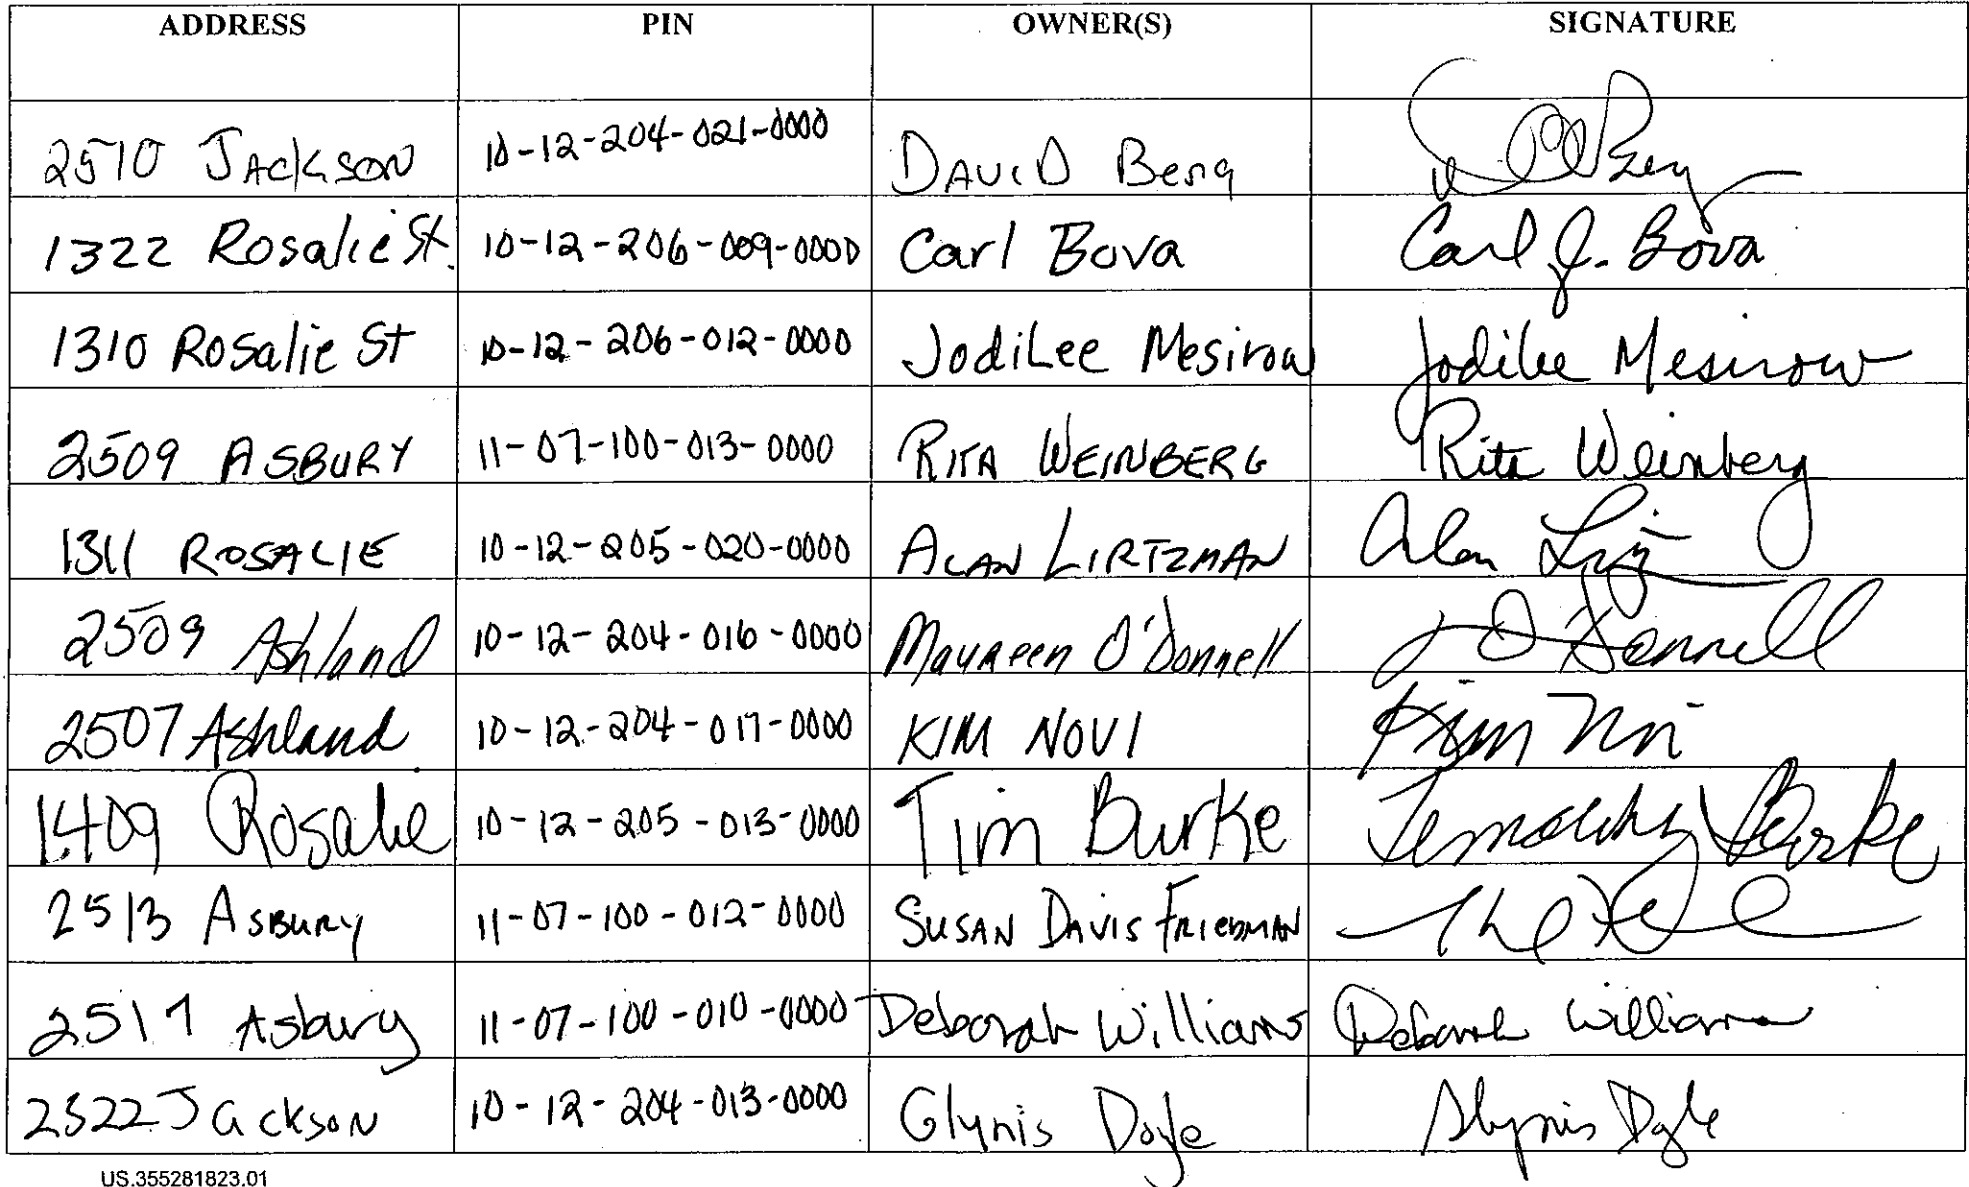 ADDRESS PIN OWNER(S) SIGNATURE
2510 JACKSON 10-12-204-021-0000 DAVID Berg Berg
1322 Rosalie St. 10-12-206-009-0000 Carl Bova Carl J. Bova
1310 Rosalie St 10-12-206-012-0000 JodiLee Mesirow Jodilee Mesirow
2509 ASBURY 11-07-100-013-0000 RITA WEINBERG Rita Weinberg
1311 ROSALIE 10-12-205-020-0000 ALAN LIRTZMAN Alan
2509 Ashland 10-12-204-016-0000 Maureen O'Donnell O'Donnell
2507 Ashland 10-12-204-017-0000 KIM NOVI Kim
1409 Rosalie 10-12-205-013-0000 Tim Burke Timothy Burke
2513 ASBURY 11-07-100-012-0000 SUSAN DAVIS FRIEDMAN
2517 Asbury 11-07-100-010-0000 Deborah Williams Deborah Williams
2522 Jackson 10-12-204-013-0000 Glynis Doyle Glynis Doyle
US.355281823.01